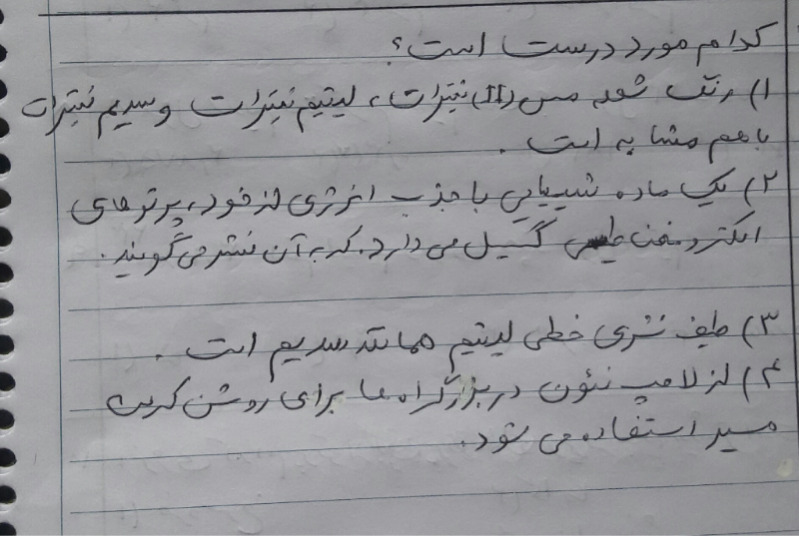 کدام مورد درست است؟
۱) رنگ شعله مس (II) نیترات، لیتیم نیترات و سدیم نیترات
با هم مشابه است.
۲) یک ماده شیمیایی با جذب انرژی از خود، پرتوهای
الکترومغناطیسی گسیل می دارد. که به آن نشر می گویند.
۳) طیف نشری خطی لیتیم همانند سدیم است.
۴) از لامپ نئون در بزرگراه ها برای روشن کردن
مسیر استفاده می شود.